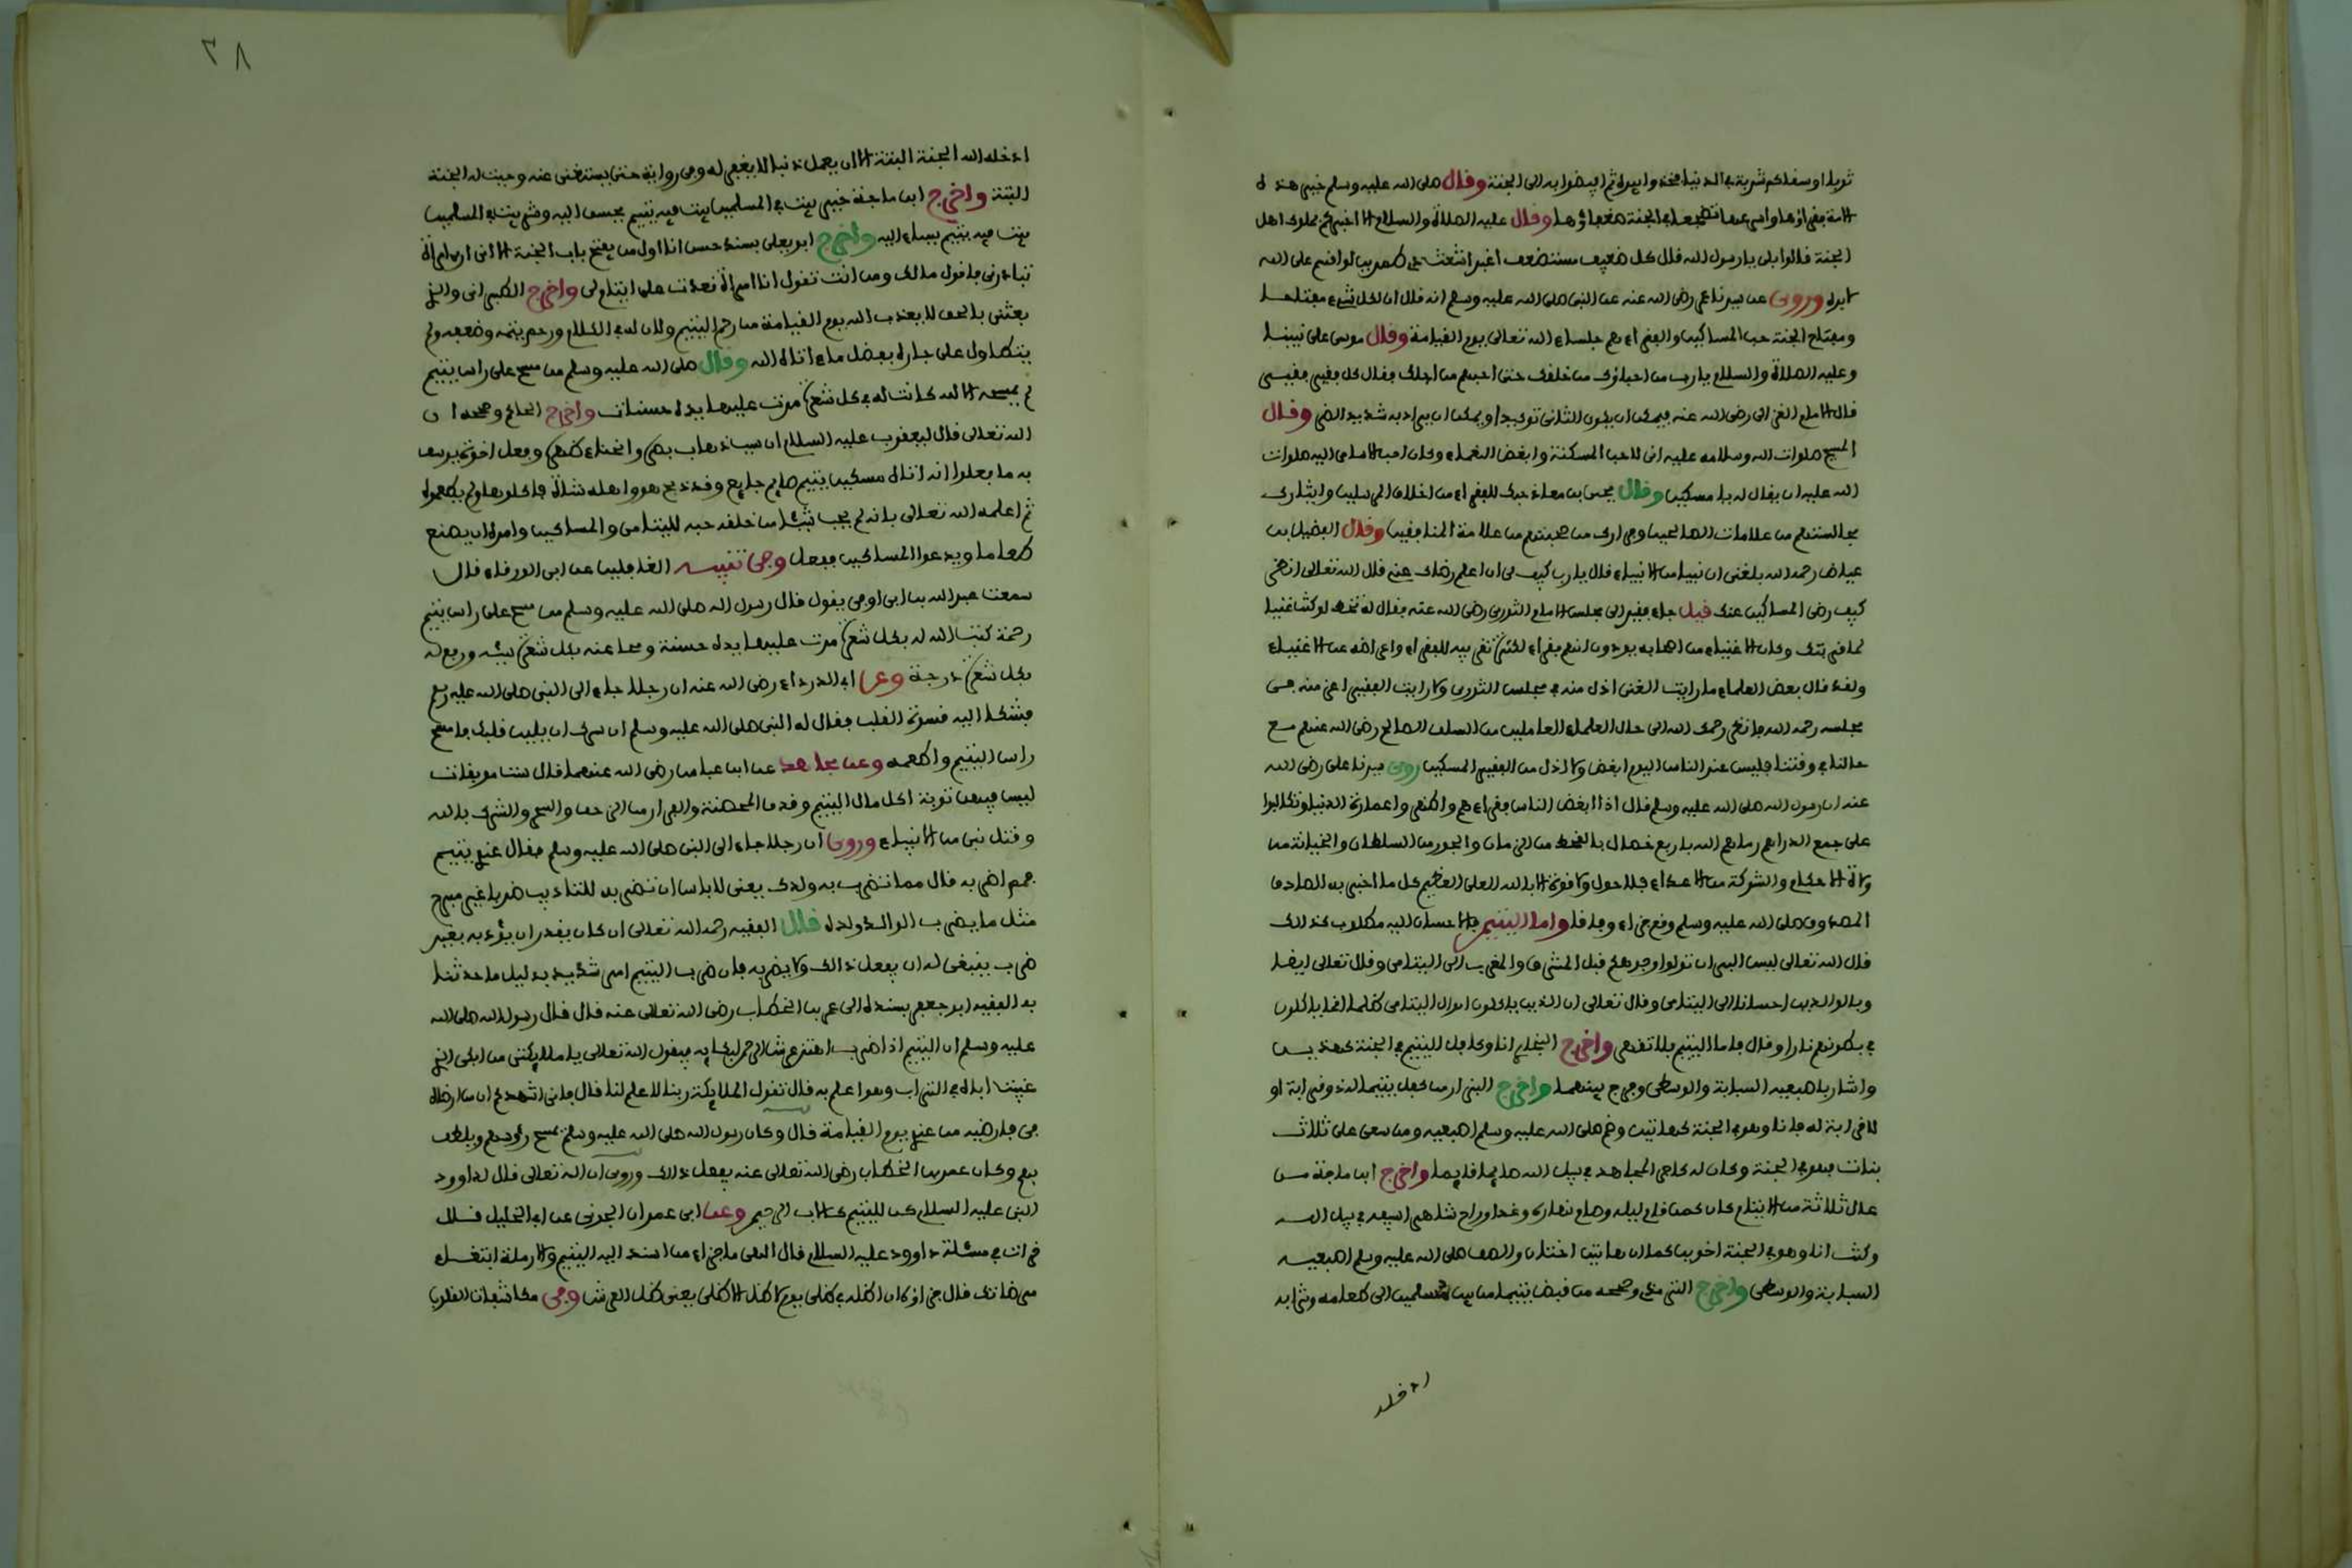 ثوبا او سقاكم شربة في الدنيا فخذوا بيده ثم افيضوا به الى الجنة وقال صلى الله عليه وسلم خير هذه
الامة فقراؤها واسرعها تضجعا في الجنة ضعفاؤها وقال عليه الصلاة والسلام الا اخبركم بملوك اهل
الجنة قالوا بلى يا رسول الله قال كل ضعيف مستضعف اغبر اشعث ذي طمرين لو اقسم على الله
لابره وروى عن سيدنا عمر رضي الله عنه عن النبي صلى الله عليه وسلم انه قال ان لكل شيء مفتاحا
ومفتاح الجنة حب المساكين والفقراء هم جلساء الله تعالى يوم القيامة وقال موسى على نبينا
وعليه الصلاة والسلام يا رب من احباؤك من خلقك حتى احبهم من اجلك فقال كل فقير فقير
قال الامام الغزالي رضي الله عنه فيمكن ان يكون الثاني توكيدا ويمكن ان يراد به شديد الضر وقال
المسيح صلوات الله وسلامه عليه اني لاحب المسكنة وابغض النعماء وكان احب الاسامي اليه صلوات
الله عليه ان يقال له يا مسكين وقال يحيى بن معاذ حبك للفقراء من اخلاق المرسلين وايثارك
مجالستهم من علامات الصالحين وفرارك من صحبتهم من علامة المنافقين وقال الفضيل بن
عياض رحمه الله بلغني ان نبيا من الانبياء قال يا رب كيف لي ان اعلم رضاك عني قال الله تعالى انظر
كيف رضى المساكين عنك قيل جاء فقير الى مجلس الامام الثوري رضي الله عنه فقال له تخط لو كنت غنيا
لما قربتك وكان الاغنياء من اصحابه يودون انهم فقراء لكثرة تقريبه للفقراء واعراضه عن الاغنياء
ولقد قال بعض العلماء ما رايت الغني اذل منه في مجلس الثوري ولا رايت الفقير اعز منه في
مجلسه رحمه الله فانظر رحمك الله الى حال العلماء العاملين من السلف الصالح رضي الله عنهم مع
حالنا في وقتنا فليس عند الناس اليوم ابغض ولا اذل من الفقير المسكين روى سيدنا علي رضي الله
عنه ان رسول الله صلى الله عليه وسلم قال اذا ابغض الناس فقراءهم واظهروا عمارة الدنيا وتكالبوا
على جمع الدراهم رماهم الله باربع خصال بالقحط من الزمان والجور من السلطان والخيانة من
ولاة الاحكام والشوكة من الاعداء فلا حول ولا قوة الا بالله العلي العظيم كل ما اخبر به الصادق
المصدوق صلى الله عليه وسلم وقع جزاء وفاقا واما اليتيم فالاحسان اليه مطلوب كذلك
قال الله تعالى ليس البر ان تولوا وجوهكم قبل المشرق والمغرب الى اليتامى وقال تعالى ايضا
وبالوالدين احسانا الى اليتامى وقال تعالى ان الذين ياكلون اموال اليتامى ظلما انما ياكلون
في بطونهم نارا وقال فاما اليتيم فلا تقهر واخرج البخاري انا وكافل اليتيم في الجنة كهذين
واشار باصبعيه السبابة والوسطى وفرج بينهما واخرج البزار من كفل يتيما له ذو قرابة او
لا قرابة له فانا وهو في الجنة كهاتين وضم صلى الله عليه وسلم اصبعيه ومن سعى على ثلاث
بنات فهو في الجنة وكان له كاجر المجاهد في سبيل الله صائما قائما واخرج ابن ماجة من
عال ثلاثة من الايتام كان كمن قام ليله وصام نهاره وغدا وراح شاهرا سيفه في سبيل الله
وكنت انا وهو في الجنة اخوين كما ان هاتين اختان والصق صلى الله عليه وسلم اصبعيه
السبابة والوسطى واخرج الترمذي وصححه من قبض يتيما من بين مسلمين الى طعامه وشرابه
٢٨
ادخله الله الجنة البتة الا ان يعمل ذنبا لا يغفر له وفي رواية حتى يستغني عنه وجبت له الجنة
البتة واخرج ابن ماجة خير بيت في المسلمين بيت فيه يتيم يحسن اليه وشر بيت في المسلمين
بيت فيه يتيم يساء اليه واخرج ابو يعلى بسند حسن انا اول من يفتح باب الجنة الا اني ارى امراة
تبادرني فاقول ما لك ومن انت تقول انا امراة قعدت على ايتام لي واخرج الطبراني والذي
بعثني بالحق لا يعذب الله يوم القيامة من رحم اليتيم ولان له في الكلام ورحم يتمه وضعفه ولم
يتطاول على جاره بفضل ما ءاتاه الله وقال صلى الله عليه وسلم من مسح على راس يتيم
لم يمسحه الا لله كانت له في كل شعرة مرت عليها يده حسنات واخرج الحاكم وصححه ان
الله تعالى قال ليعقوب عليه السلام ان سبب ذهاب بصره وانحناء ظهره وفعل اخوة يوسف
به ما فعلوا انه اتاه مسكين يتيم صايم جايع وقد ذبح هو واهله شاة فاكلوها ولم يطعموه
ثم اعلمه الله تعالى بانه لم يحب شيئا من خلقه حبه لليتامى والمساكين وامره ان يصنع
طعاما ويدعوا المساكين ففعل وفي تنبيه الغافلين عن ابي الورقاء قال
سمعت عبد الله بن ابي اوفى يقول قال رسول الله صلى الله عليه وسلم من مسح على راس يتيم
رحمة كتب الله له بكل شعرة مرت عليها يده حسنة ومحا عنه بكل شعرة سيئة ورفع له
بكل شعرة درجة وعن ابي الدرداء رضي الله عنه ان رجلا جاء الى النبي صلى الله عليه وسلم
فشكا اليه قسوة القلب فقال له النبي صلى الله عليه وسلم ان سرك ان يلين قلبك فامسح
راس اليتيم واطعمه وعن مجاهد عن ابن عباس رضي الله عنهما قال ست موبقات
ليس فيهن توبة اكل مال اليتيم وقذف المحصنة والفرار من الزحف والسحر والشرك بالله
وقتل نبي من الانبياء وروي ان رجلا جاء الى النبي صلى الله عليه وسلم فقال عندي يتيم
فمم اضربه قال مما تضرب به ولدك يعني لا باس ان تضربه للتاديب ضربا غير مبرح
مثل ما يضرب الوالد ولده قال الفقيه رحمه الله تعالى ان كان يقدر ان يؤدبه بغير
ضرب ينبغي له ان يفعل ذالك ولا يضربه فان ضرب اليتيم امر شديد بدليل ما حدثنا
به الفقيه ابو جعفر بسنده الى عمر بن الخطاب رضي الله تعالى عنه قال قال رسول الله صلى الله
عليه وسلم ان اليتيم اذا ضرب اهتز عرش الرحمن لبكايه فيقول الله تعالى يا ملايكتي من ابكى الذي
غيبت اباه في التراب وهو اعلم به قال تقول الملايكة ربنا لا علم لنا قال فاني اشهدكم ان من ارضاه
في فارضيه من عندي يوم القيامة قال وكان رسول الله صلى الله عليه وسلم يمسح رءوسهم ويلطف
بهم وكان عمر بن الخطاب رضي الله تعالى عنه يفعل ذالك وروي ان الله تعالى قال لداوود
النبي عليه السلام كن لليتيم كالاب الرحيم وعن ابي عمران الجوني عن ابي الخليل قال
قرات في مسئلة داوود عليه السلام قال الهي ما جزاء من اسند اليه اليتيم والارملة ابتغاء
مرضاتك قال جزاؤه ان اظله في ظلي يوم لا ظل الا ظلي يعني ظل العرش وفي مكاشفات القلوب